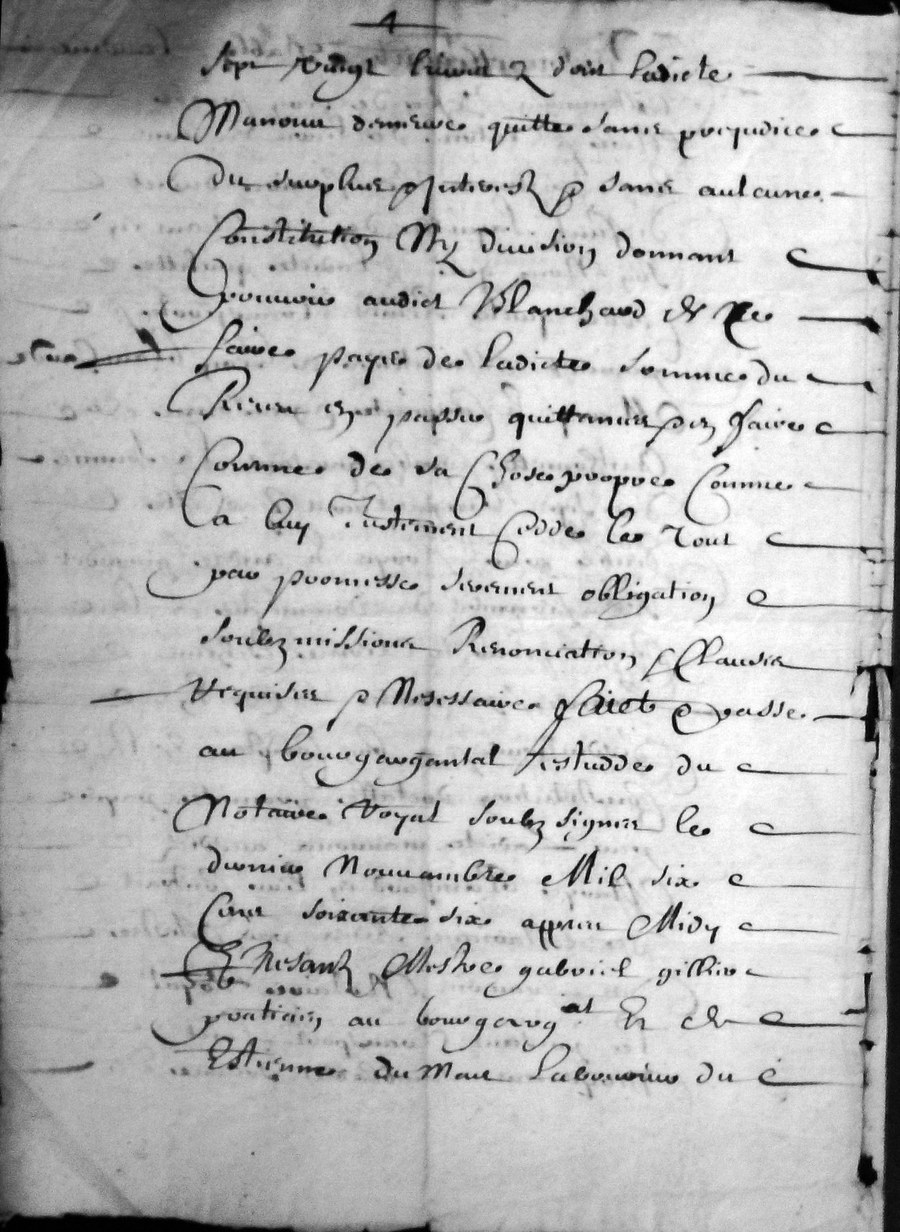 4
sept vingt livres & d'ois ladicte
Manoir demeure quitte sans prejudice
du surplus & interestz & sans aulcune
Constitution Ny division donnant
pouvoir audict Blanchard de se
faire payer de ladicte somme du
Rieu en passer quittances & en faire
Comme de sa Chose propre Comme
a luy Justement Cedde le Tout
par promesse serement obligation
soubzmissions Renonciation & Clauses
requises & Nesessaire faict & passe
au bourgargental estudde du
Notaire royal soubzsigner le
dernier Nouvambre Mil six
Cens soixante six appres Midy
Presantz Mestre gabriel gillier
praticien au bourgargal Et
Estienne du Mas Laboureur du